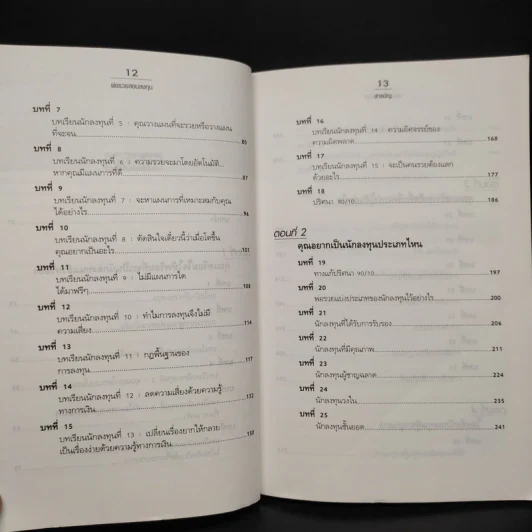 12
พ่อรวยสอนลงทุน
บทที่ 7
บทเรียนนักลงทุนที่ 5 : คุณวางแผนที่จะรวยหรือวางแผน
ที่จะจน 85
บทที่ 8
บทเรียนนักลงทุนที่ 6 : ความรวยจะมาโดยอัตโนมัติ
หากคุณมีแผนการที่ดี
บทที่ 9
บทเรียนนักลงทุนที่ 7 : จะหาแผนการที่เหมาะสมกับคุณ
ได้อย่างไร 94
บทที่ 10
บทเรียนนักลงทุนที่ 8 : ตัดสินใจเดี๋ยวนี้ว่าเมื่อโตขึ้น
คุณอยากเป็นอะไร 101
บทที่ 11
บทเรียนนักลงทุนที่ 9 : ไม่มีแผนการใด
ได้มาฟรีๆ
บทที่ 12
บทเรียนนักลงทุนที่ 10 : ทำไมการลงทุนจึงไม่มี
ความเสี่ยง 114
บทที่ 13
บทเรียนนักลงทุนที่ 11 : กฎพื้นฐานของ
การลงทุน 117
บทที่ 14
บทเรียนนักลงทุนที่ 12 : ลดความเสี่ยงด้วยความรู้
ทางการเงิน 132
บทที่ 15
บทเรียนนักลงทุนที่ 13 : เปลี่ยนเรื่องยากให้กลาย
เป็นเรื่องง่ายด้วยความรู้ทางการเงิน
13
สารบัญ
บทที่ 16
บทเรียนนักลงทุนที่ 14 : ความอัศจรรย์ของ
ความผิดพลาด 168
บทที่ 17
บทเรียนนักลงทุนที่ 15 : จะเป็นคนรวยต้องแลก
ด้วยอะไร 177
บทที่ 18
ปริศนา 90/10 186
ตอนที่ 2
คุณอยากเป็นนักลงทุนประเภทไหน
บทที่ 19
ทางแก้ปริศนา 90/10 197
บทที่ 20
พ่อรวยแบ่งประเภทของนักลงทุนไว้อย่างไร 200
บทที่ 21
นักลงทุนที่ได้รับการรับรอง 206
บทที่ 22
นักลงทุนที่มีคุณภาพ 211
บทที่ 23
นักลงทุนผู้ชาญฉลาด 224
บทที่ 24
นักลงทุนวงใน 235
บทที่ 25
นักลงทุนชั้นยอด 241